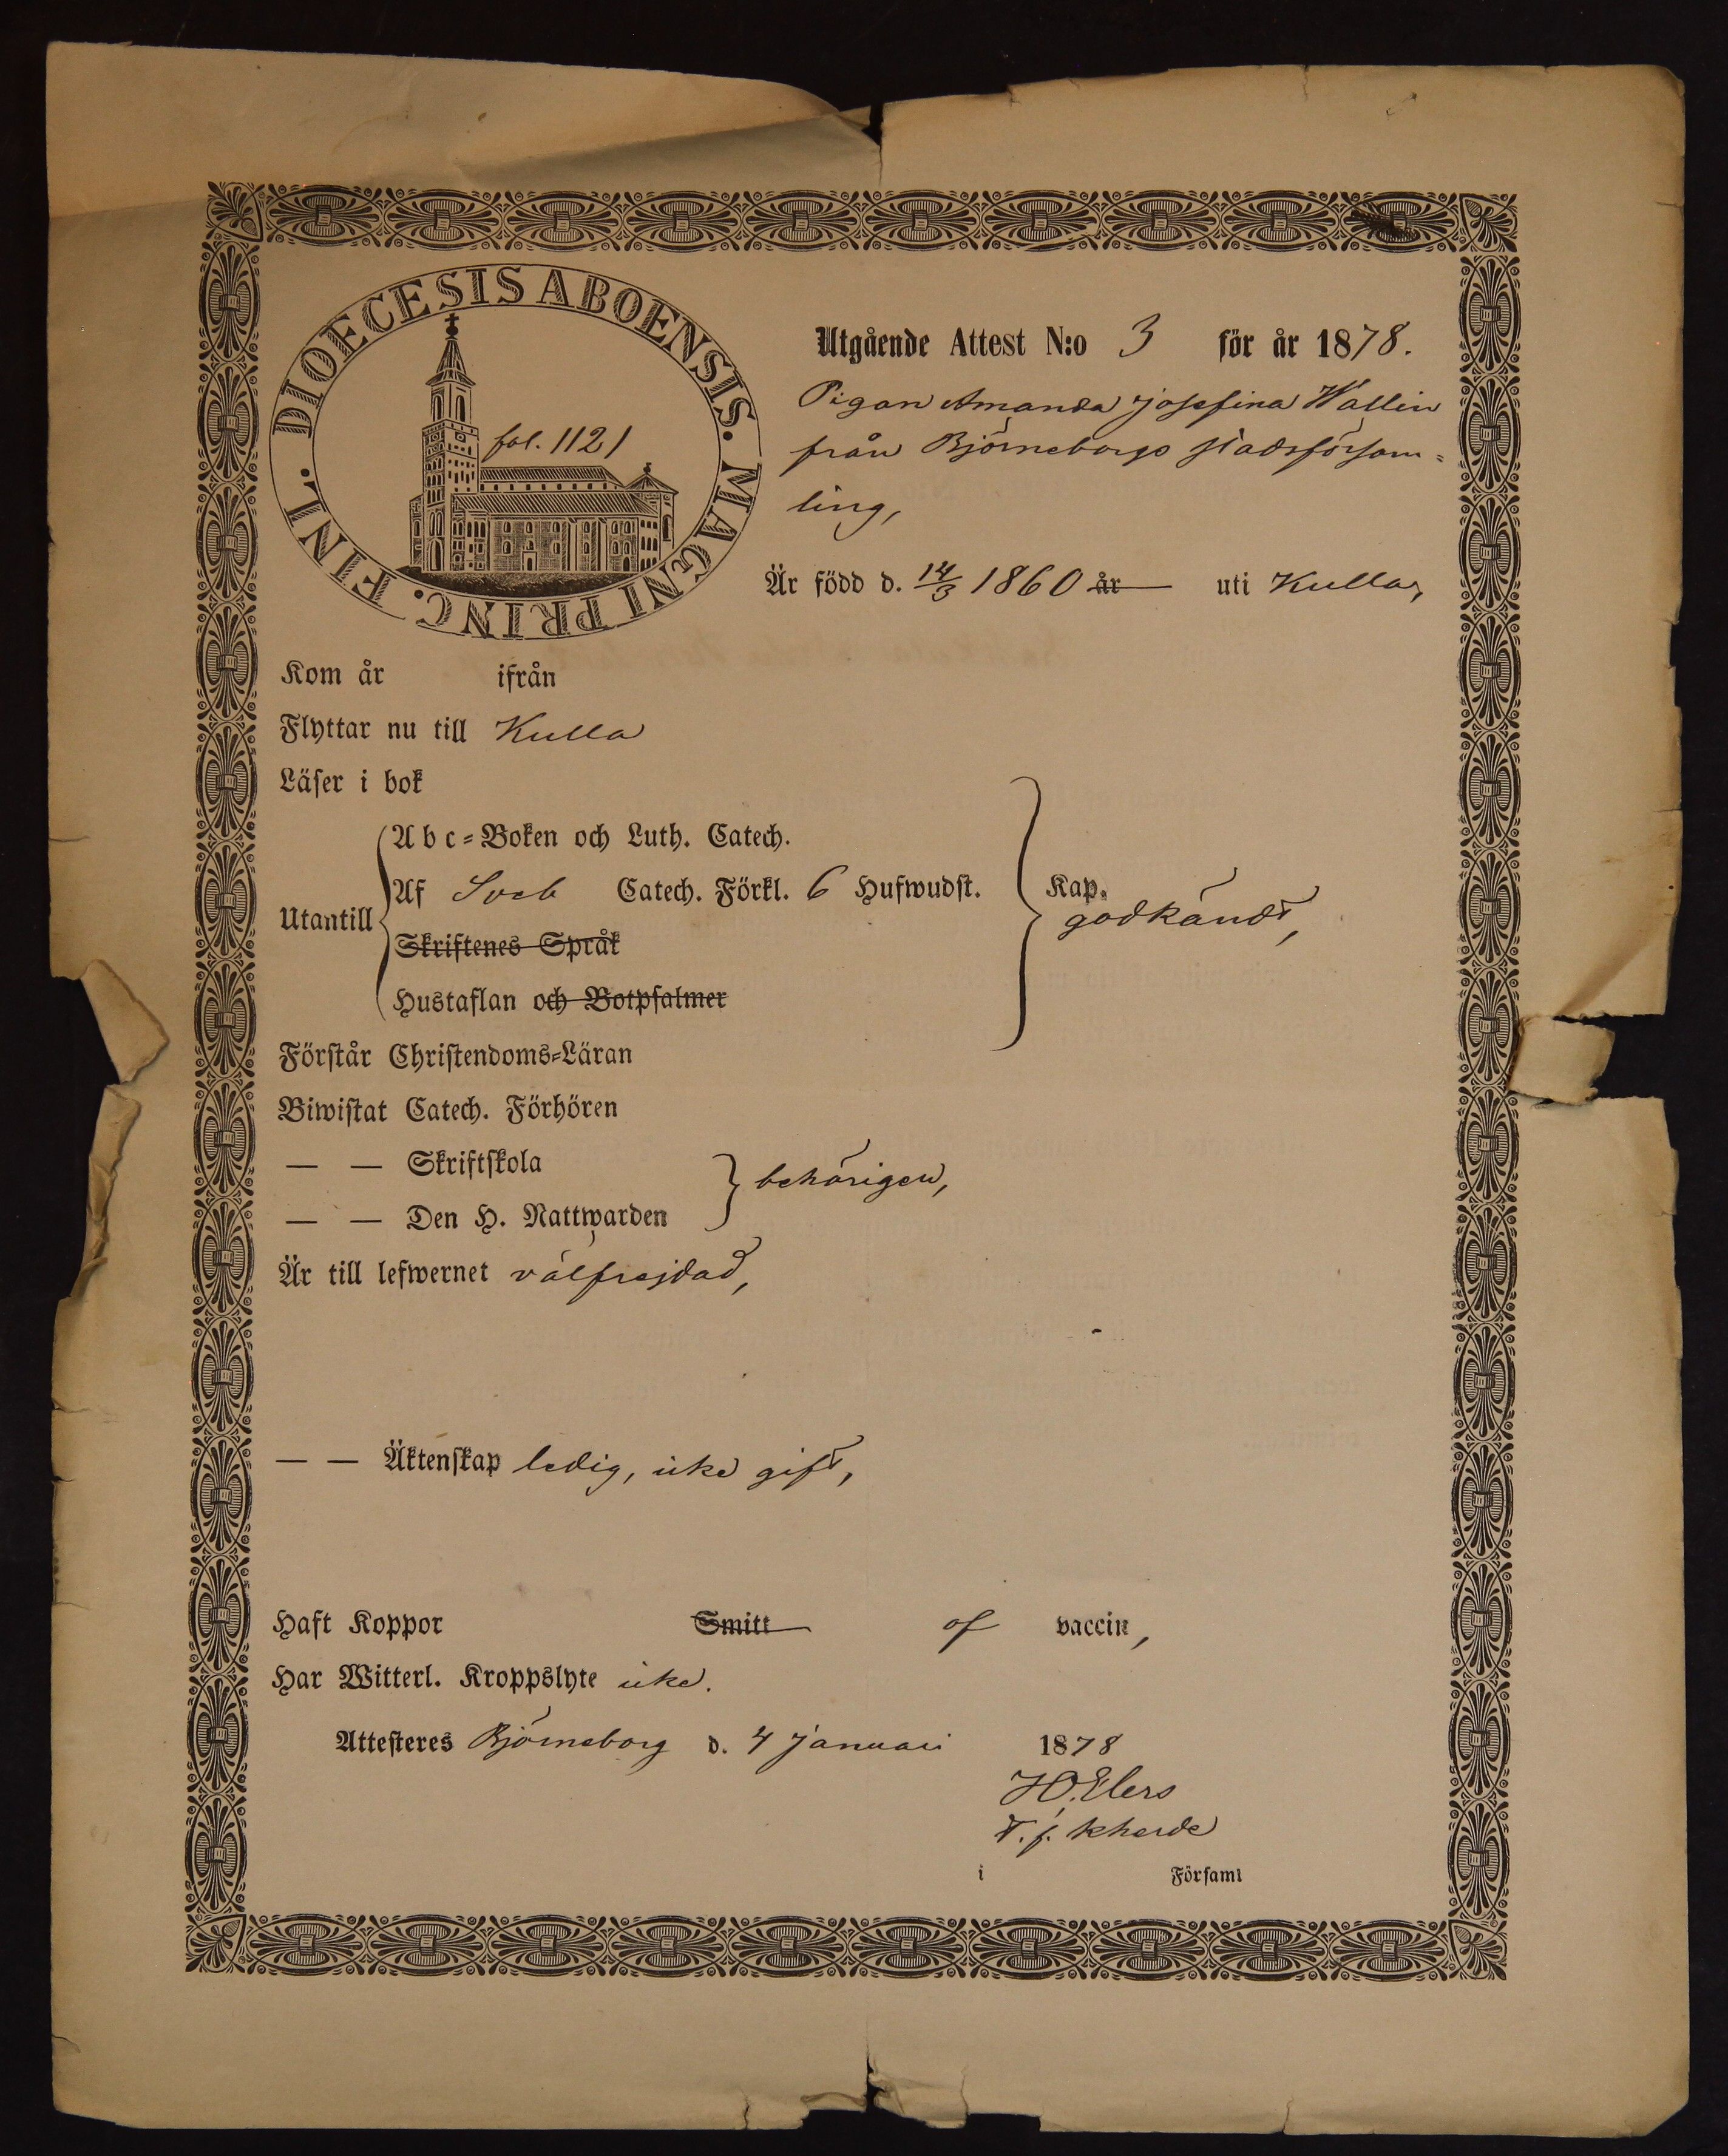 DIOECESIS ABOENSIS. MAGNI PRINC. FINL.
fol. 1121
Utgående Attest N:o 3 för år 1878.
Pigan Amanda Josefina Wallin
från Björneborgs stadsförsam=
ling,
Är född d. 14/3 1860 år uti Kulla,
Kom år ifrån
Flyttar nu till Kulla
Läser i bok
Abc=Boken och Luth. Catech.
Utantill Af Sveb Catech. Förkl. 6 Hufwudst. Kap.
godkändt,
Skriftenes Språk
Hustaflan och Botpsalmer
Förstår Christendoms=Läran
Biwistat Catech. Förhören
— — Skriftskola
behörigen,
— — Den H. Nattwarden
Är till lefwernet välfrejdad,
— — Äktenskap ledig, icke gift,
Haft Koppor Smitt af vaccin,
Har Witterl. Kroppslyte icke.
Attesteres Björneborg d. 4 Januari 1878
H.O. Elers
t. f. kherde
i Församl